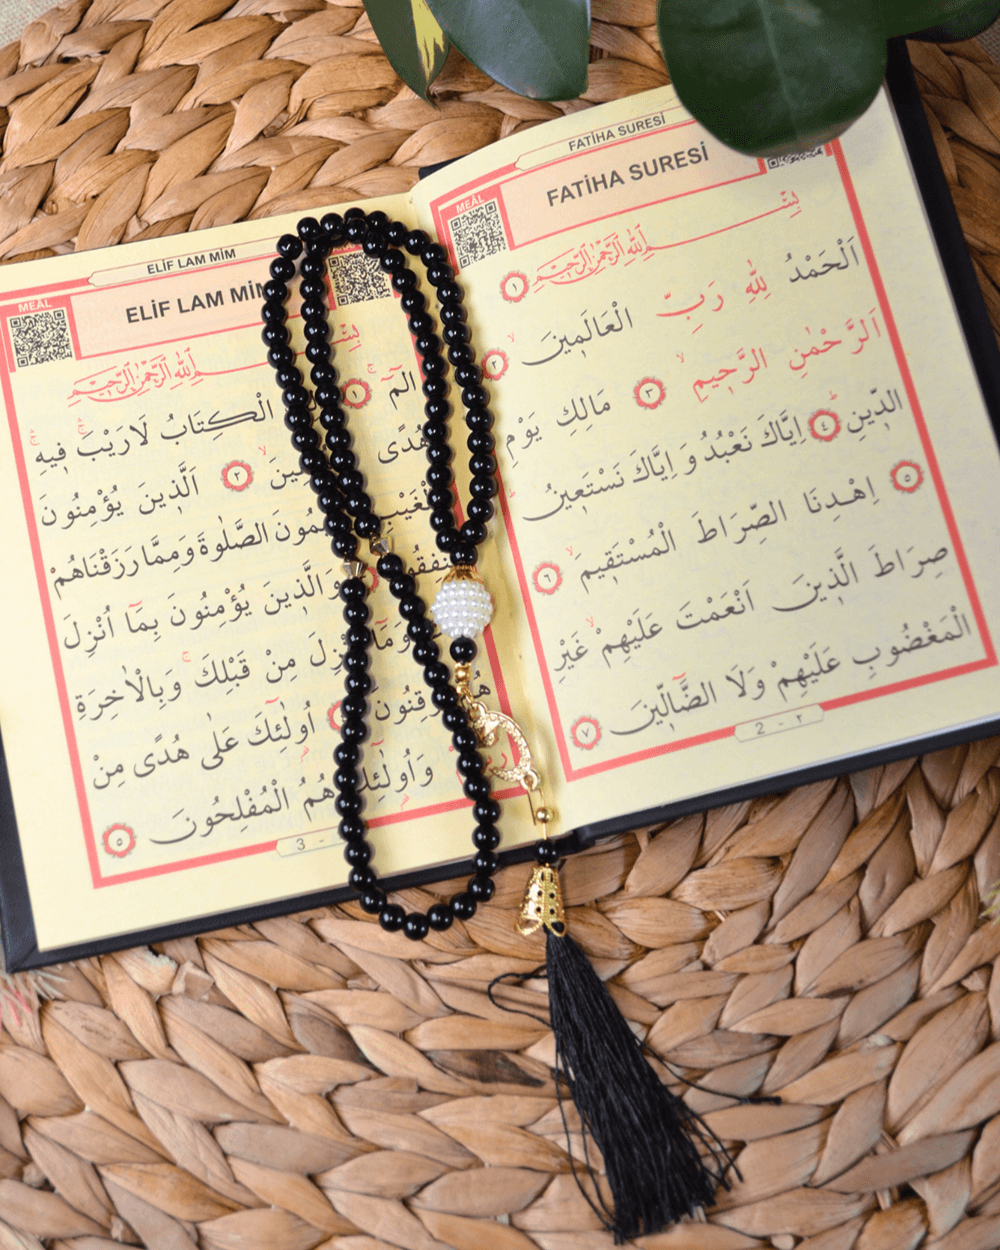 FATİHA SURESİ
FATİHA SURESİ
MEÂL
بِسْمِ اللّٰهِ الرَّحْمٰنِ الرَّحِيمِ ١
اَلْحَمْدُ لِلّٰهِ رَبِّ الْعَالَمٖينَ ٢
اَلرَّحْمٰنِ الرَّحٖيمِ ٣ مَالِكِ يَوْمِ
الدّٖينِ ٤ اِيَّاكَ نَعْبُدُ وَ اِيَّاكَ نَسْتَعٖينُ
٥ اِهْدِنَا الصِّرَاطَ الْمُسْتَقٖيمَ ٦
صِرَاطَ الَّذٖينَ اَنْعَمْتَ عَلَيْهِمْ غَيْرِ
الْمَغْضُوبِ عَلَيْهِمْ وَلَا الضَّٓالّٖينَ ٧
2 - ٢
ELİF LAM MİM
ELİF LAM MİM
MEÂL
بِسْمِ اللّٰهِ الرَّحْمٰنِ الرَّحِيمِ
الٓمٓ ١ الْكِتَابُ لَا رَيْبَ فٖيهِ
هُدًى ٢ اَلَّذٖينَ يُؤْمِنُونَ
الصَّلٰوةَ وَمِمَّا رَزَقْنَاهُمْ
وَالَّذٖينَ يُؤْمِنُونَ بِمَٓا اُنْزِلَ
وَمَٓا مِنْ قَبْلِكَ وَبِالْاٰخِرَةِ
اُولٰٓئِكَ عَلٰى هُدًى مِنْ
وَاُولٰٓئِكَ هُمُ الْمُفْلِحُونَ ٥
3 -